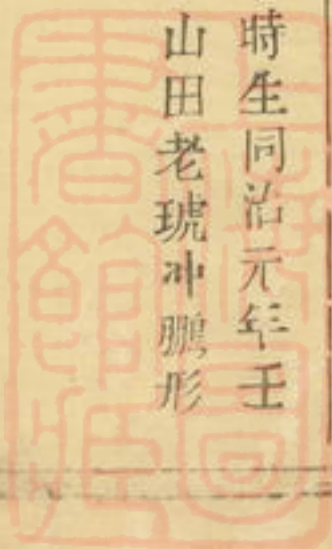 時生同治元年壬
山田老琥冲鵬形